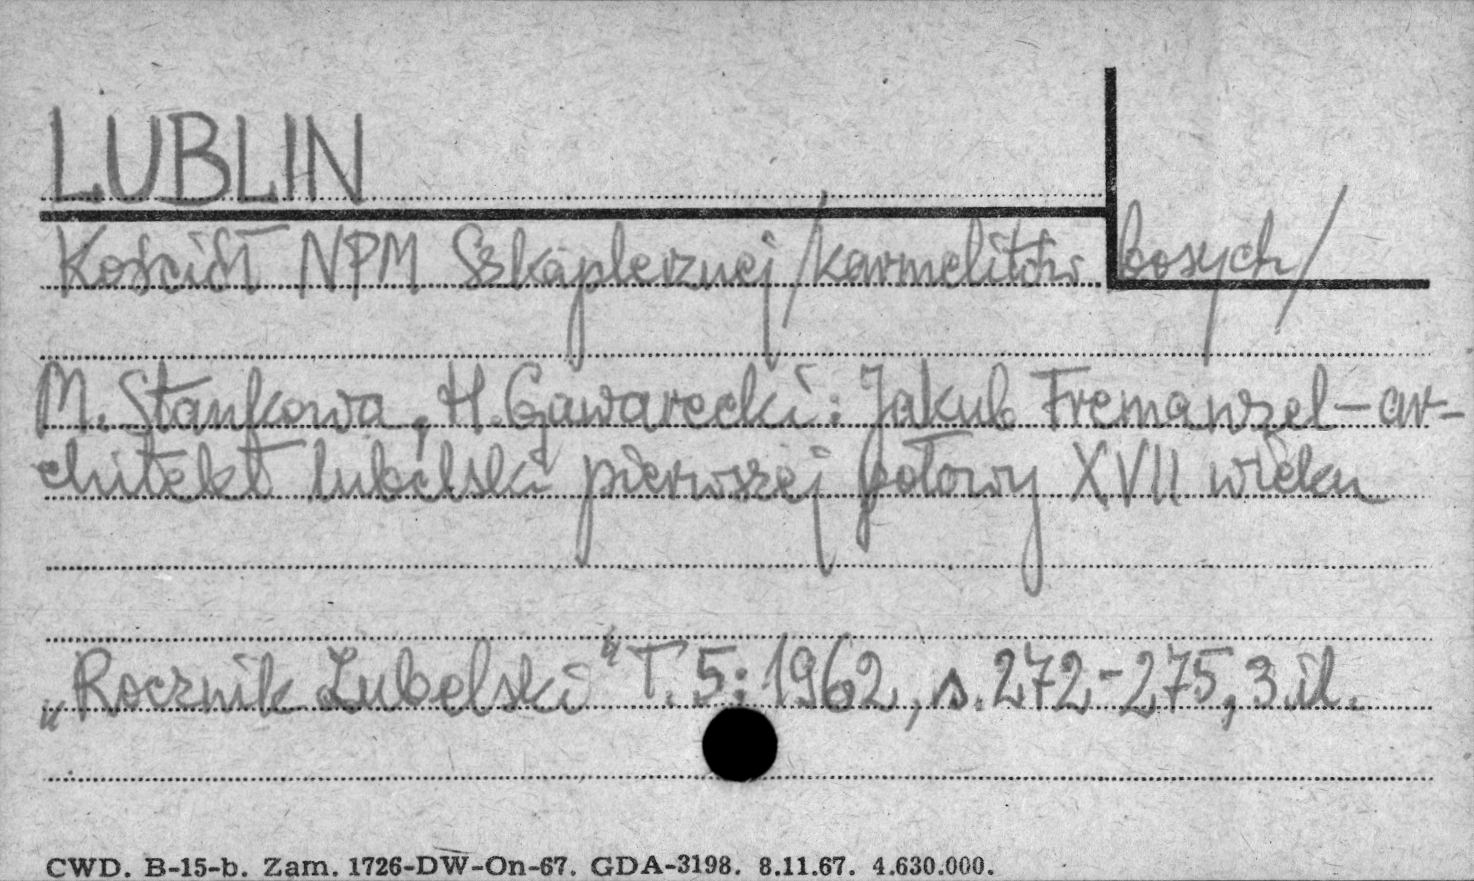 LUBLIN
Kościół NPM Szkaplerznej /karmelitów bosych/
M. Stankowa, H. Gawarecki: Jakub Fremanzel - ar-
chitekt lubelski pierwszej połowy XVII wieku
„Rocznik Lubelski" T. 5: 1962, s. 272-275, 3 il.
CWD. B-15-b. Zam. 1726-DW-On-67. GDA-3198. 8.11.67. 4.630.000.